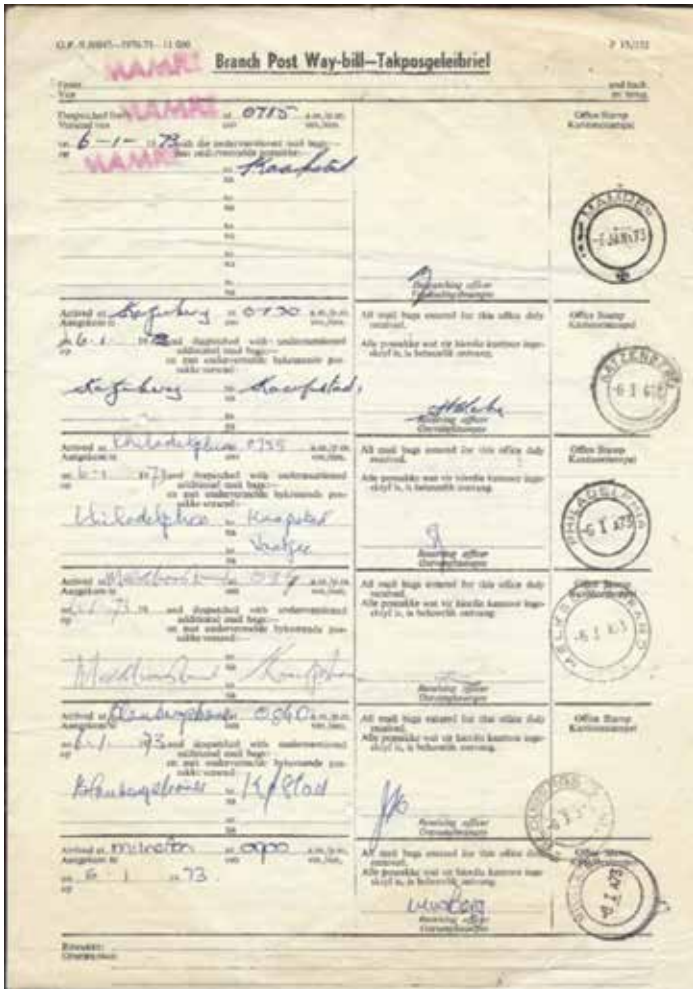 MAMRE
Branch Post Way-bill—Takposgeleibrief
From
Van
and back
en terug.
Despatched from MAMRE at 0715 a.m./p.m.
Versend van om vm./nm.
on 6-1-1973 with the undermentioned mail bags:—
op met ondervermelde possakke:—
MAMRE
to Kaapstad
na
to
na
to
na
to
na
to
na
Despatching officer
Versendingsbeampte
Office Stamp
Kantoorstempel
MAMRE
-6 JAN 73
Arrived at Katzenberg at 0730 a.m./p.m.
Aangekom te om vm./nm.
on 6-1 19 and despatched with undermentioned
op additional mail bags:—
en met ondervermelde bykomende pos-
sakke versend:—
to Kaapstad
na
to
na
All mail bags entered for this office duly
received.
Alle possakke wat vir hierdie kantoor inge-
skryf is, is behoorlik ontvang.
Receiving officer
Ontvangbeampte
Office Stamp
Kantoorstempel
KATZENBERG
Arrived at Philadelphia 0755 a.m./p.m.
Aangekom te om vm./nm.
on 6-1 1973 and despatched with undermentioned
op additional mail bags:—
en met ondervermelde bykomende pos-
sakke versend:—
Philadelphia to Kaapstad
na
All mail bags entered for this office duly
received.
Alle possakke wat vir hierdie kantoor inge-
skryf is, is behoorlik ontvang.
Receiving officer
Ontvangbeampte
Office Stamp
Kantoorstempel
PHILADELPHIA
-6 I 73
Arrived at Melkbosstrand a.m./p.m.
Aangekom te om vm./nm.
73 19 and despatched with undermentioned
op additional mail bags:—
en met ondervermelde bykomende pos-
sakke versend:—
Melkbosstrand Kaapstad
All mail bags entered for this office duly
received.
Alle possakke wat vir hierdie kantoor inge-
skryf is, is behoorlik ontvang.
Receiving officer
Ontvangbeampte
Office Stamp
Kantoorstempel
MELKBOSSTRAND
-6 I
Arrived at 0840 a.m./p.m.
Aangekom te om vm./nm.
on 6-1 1973 and despatched with undermentioned
op additional mail bags:—
en met ondervermelde bykomende pos-
sakke versend:—
to K/Stad
na
to
na
All mail bags entered for this office duly
received.
Alle possakke wat vir hierdie kantoor inge-
skryf is, is behoorlik ontvang.
Receiving officer
Ontvangbeampte
Office Stamp
Kantoorstempel
Arrived at Milnerton at 0900 a.m./p.m.
Aangekom te om vm./nm.
on 6-1 1973.
op
All mail bags entered for this office duly
received.
Alle possakke wat vir hierdie kantoor inge-
skryf is, is behoorlik ontvang.
Receiving officer
Ontvangbeampte
Office Stamp
Kantoorstempel
Remarks:
Opmerkings: